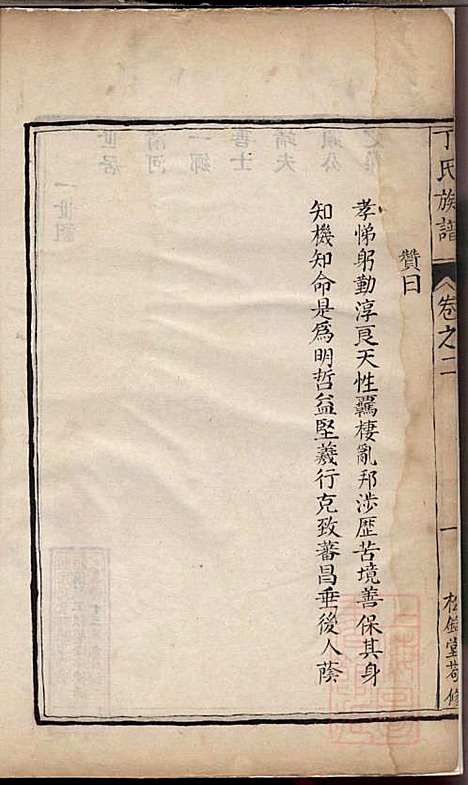 丁氏族譜
卷之二
一
贊曰
孝悌躬勤淳良天性羈棲亂邦涉歷苦境善保其身
知機知命是爲明哲益堅義行克致蕃昌垂後人蔭